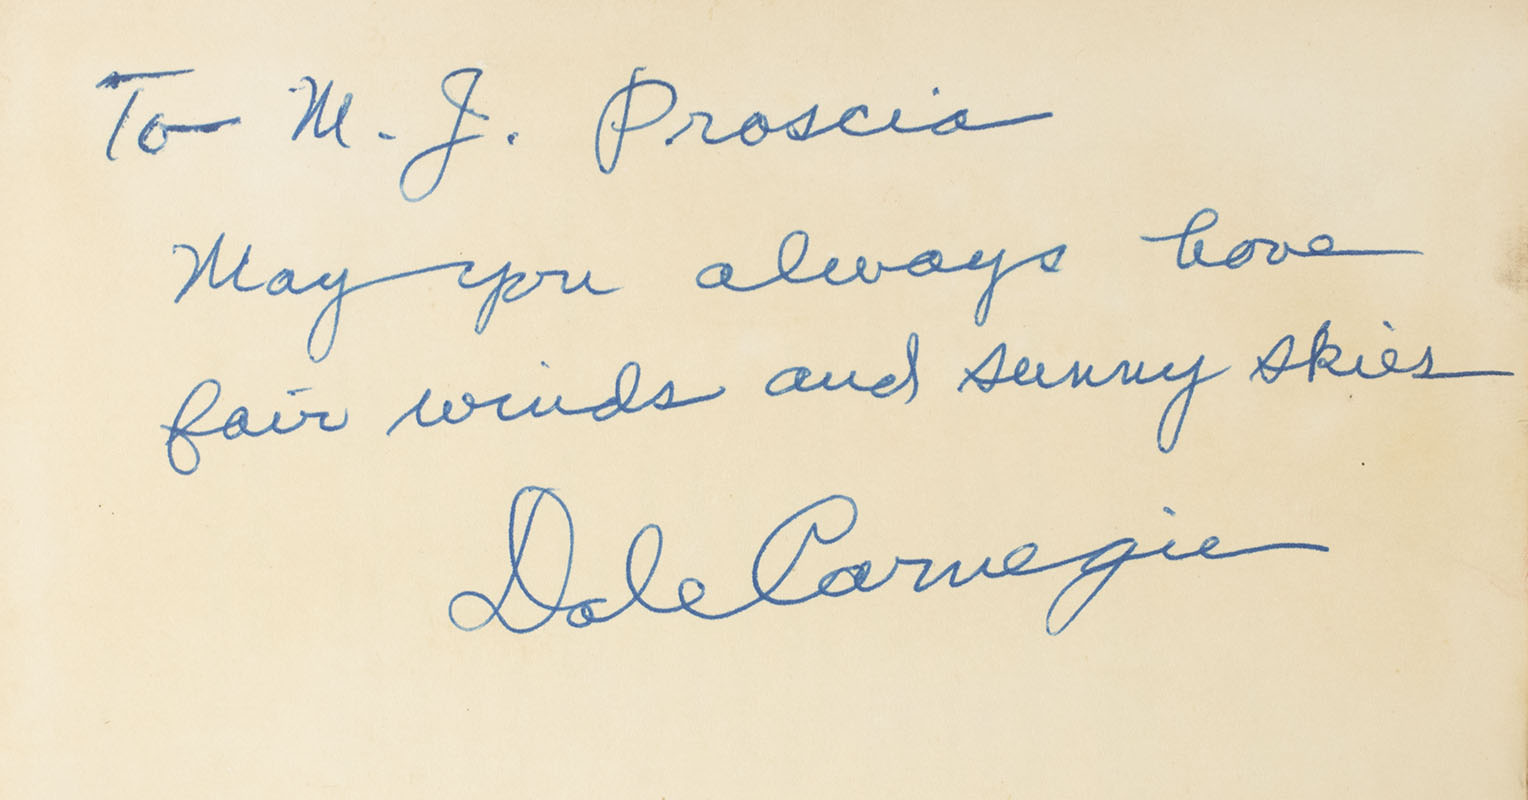 To M. J. Proscia
May you always have
fair winds and sunny skies
Dale Carnegie